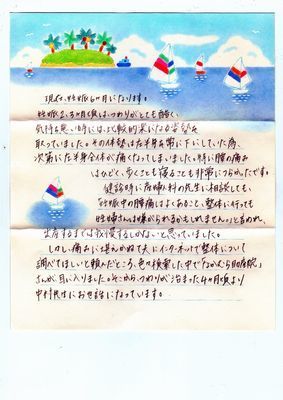 現在、妊娠6ヶ月になります。
妊娠2、3ヶ月頃は、つわりがとても酷く、
気持ち悪い時には、比較的楽になる姿勢を
取っていました。その体勢は左半身を常に下にしていた為、
次第に左半身全体が痛くなってしまいました。特に腰の痛み
はひどく、歩くことも寝ることも非常につらかったです。
健診時に産婦人科の先生に相談しても、
「妊娠中の腰痛はよくあること、整体に行っても
妊婦さんは嫌がられるかもしれません。」と言われ、
生産するまでは我慢するしかないと思っていました。
しかし、痛みに堪えかねて夫にインターネットで整体について
調べてほしいと頼んだところ、色々検索した中で「なかむら助産院」
さんが目に入りました。そこから、つわりが治まった4ヶ月頃より
中村先生にお世話になっています。